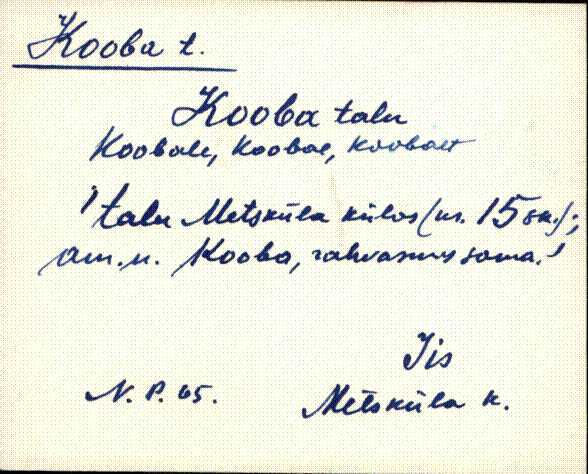 Kooba t.
Kooba talu
Koobale, Koobal, Koobalt
'talu Metsküla külas (nr. 15 sk.);
am. n. Kooba, rahvasuus sama.'
Jis
N. P. 65. Metsküla k.